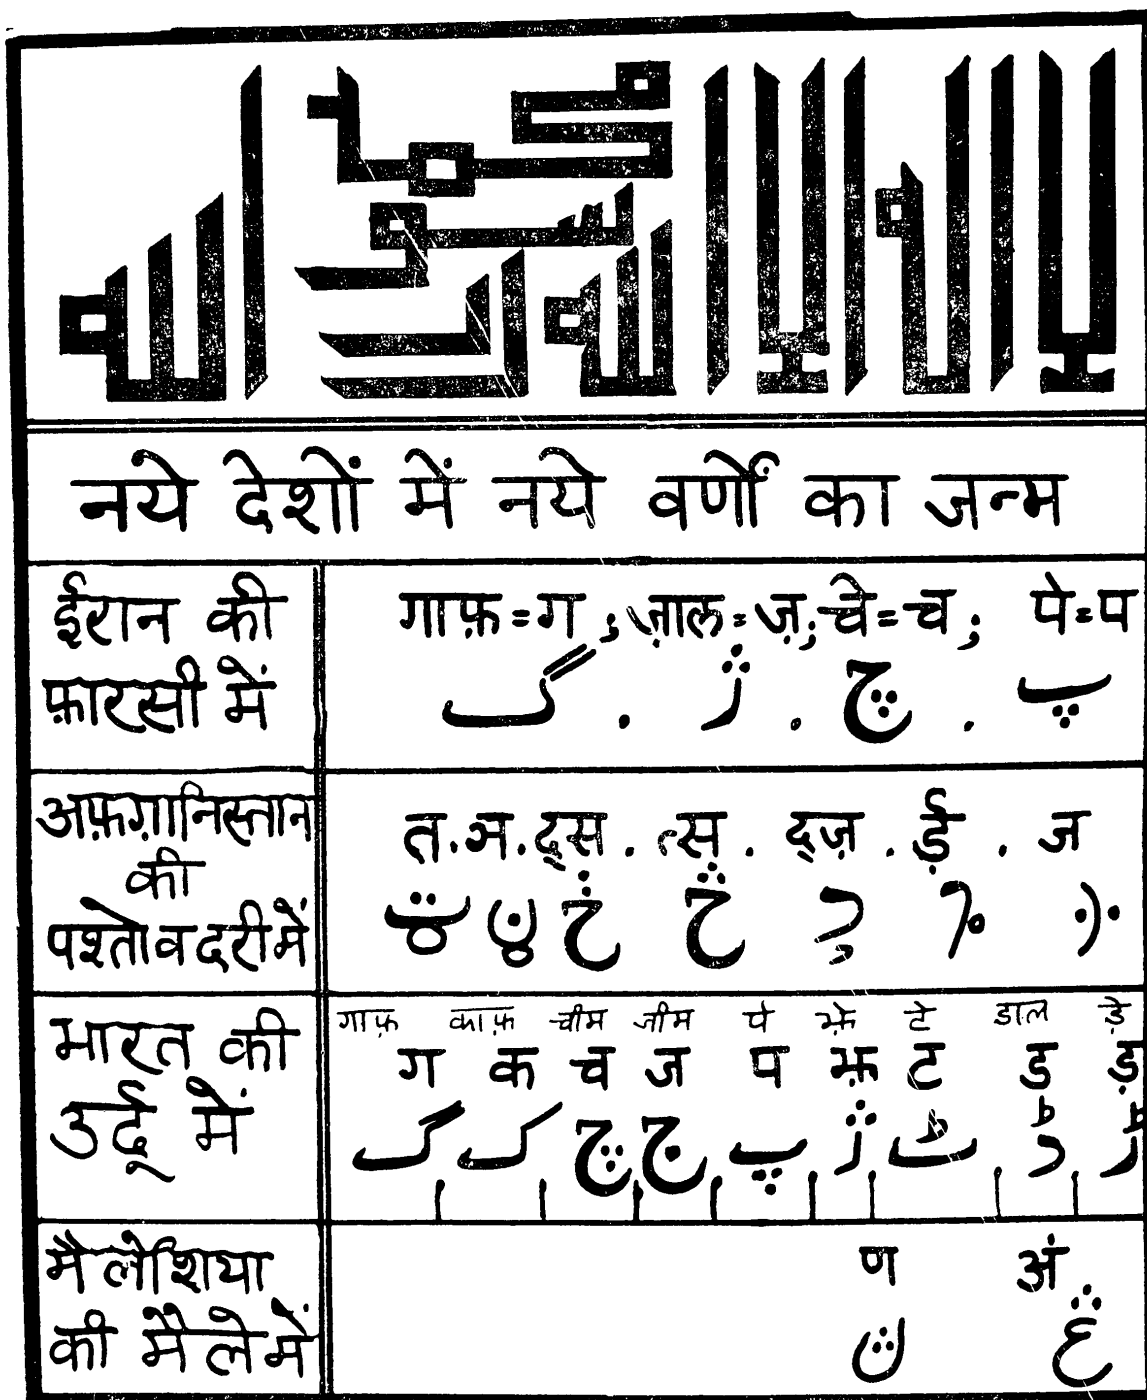 لا إله إلا الله محمد رسول الله
नये देशों में नये वर्णों का जन्म
ईरान की
फ़ारसी में
गाफ़=ग ; ज़ाल=ज़; चे=च; पे=प
گ . ژ . چ . پ
अफ़ग़ानिस्तान
की
पश्तो व दरी में
त . ञ . द्स . त्स . द्ज़ . ड़ . ज
ټ ڼ څ ړ ږ
भारत की
उर्दू में
गाफ़ काफ़ चीम जीम पे झ़े टे डाल ड़े
ग क च ज प झ़ ट ड ड़
گ ک چ ج پ ژ ٹ ڈ ڑ
मैलेशिया
की मैले में
ण अं
ڽ ڠ